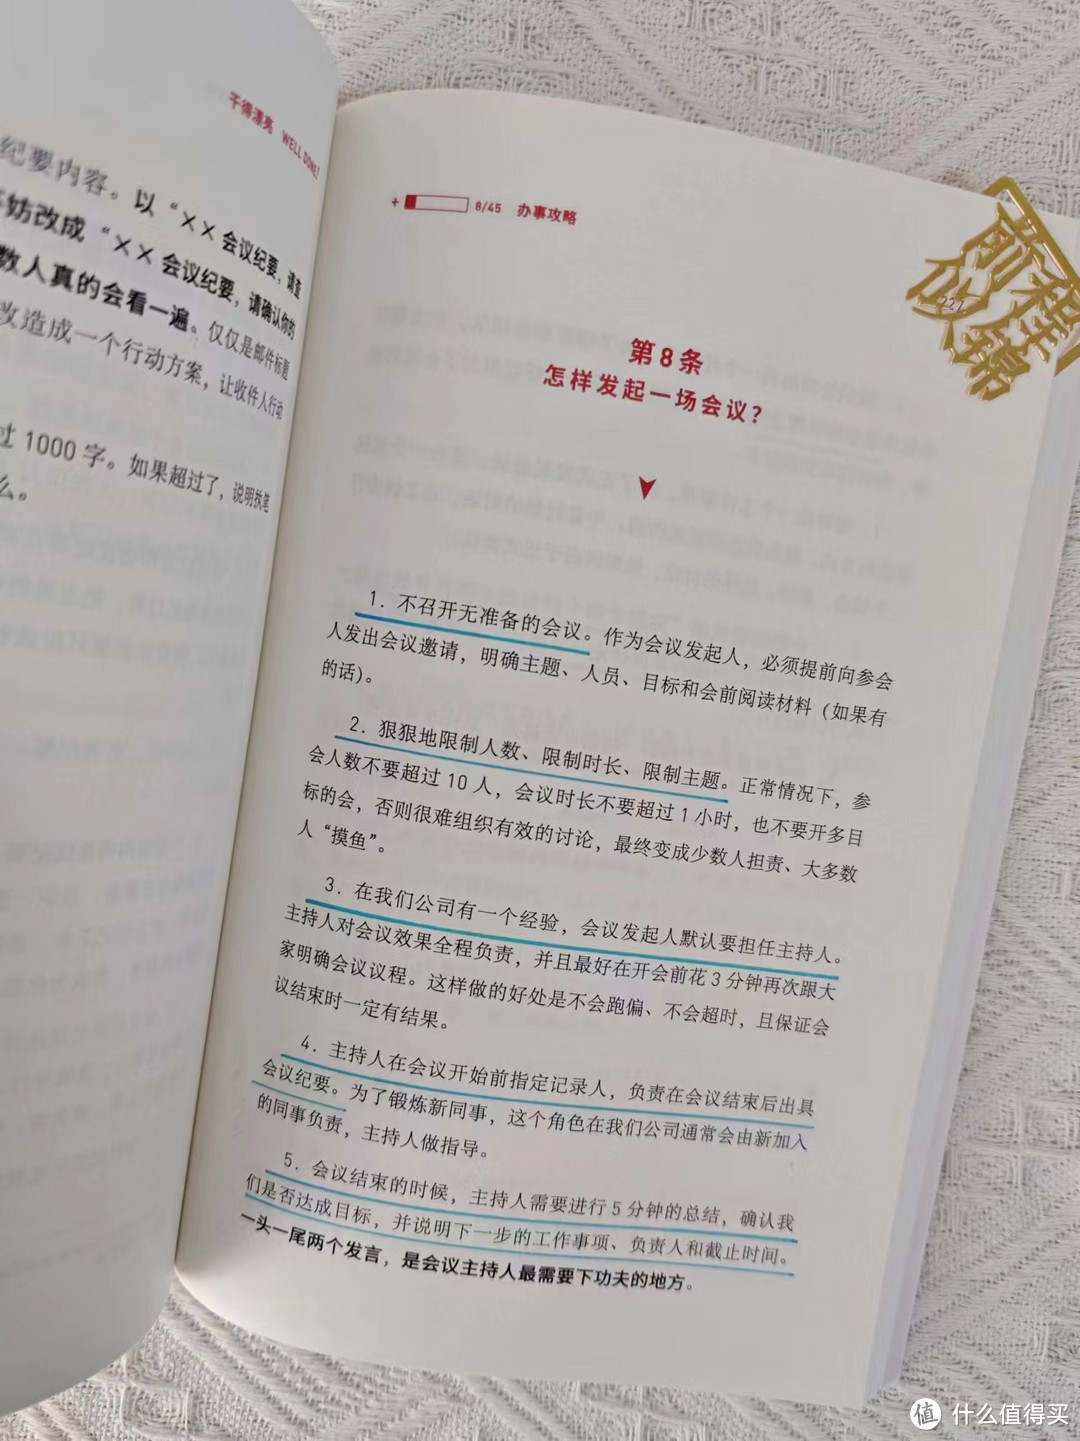 干得漂亮 WELL DONE!
纪要内容。以“××会议纪要，请查
妨改成“××会议纪要，请确认你的
数人真的会看一遍。仅仅是邮件标题
改造成一个行动方案，让收件人行动
过 1000 字。如果超过了，说明执笔
么。
+ 8/45 办事攻略
前程
似锦
227
第8条
怎样发起一场会议？
1．不召开无准备的会议。作为会议发起人，必须提前向参会
人发出会议邀请，明确主题、人员、目标和会前阅读材料（如果有
的话）。
2．狠狠地限制人数、限制时长、限制主题。正常情况下，参
会人数不要超过 10 人，会议时长不要超过 1 小时，也不要开多目
标的会，否则很难组织有效的讨论，最终变成少数人担责、大多数
人“摸鱼”。
3．在我们公司有一个经验，会议发起人默认要担任主持人。
主持人对会议效果全程负责，并且最好在开会前花 3 分钟再次跟大
家明确会议议程。这样做的好处是不会跑偏、不会超时，且保证会
议结束时一定有结果。
4．主持人在会议开始前指定记录人，负责在会议结束后出具
会议纪要。为了锻炼新同事，这个角色在我们公司通常会由新加入
的同事负责，主持人做指导。
5．会议结束的时候，主持人需要进行 5 分钟的总结，确认我
们是否达成目标，并说明下一步的工作事项、负责人和截止时间。
一头一尾两个发言，是会议主持人最需要下功夫的地方。
值 什么值得买